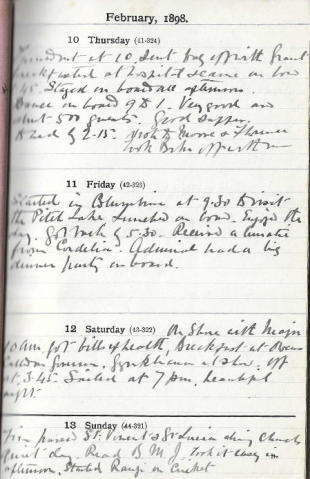 February, 1898.
10 Thursday (41-324)
at 10. Sent bag off with Grant
breakfasted at hospital & came on board
.45. Stayed on board all afternoon.
Dance on board 9 to 1. Very good and
about 500 guests. Good supper.
to bed by 2.15.
took Bks off with
11 Friday (42-323)
Started in at 9.30 to visit
the Pitch Lake Lunched on board. Enjoyed the
day. Got back by 5.30. Received a lunatic
from Cordelia. Admiral had a big
dinner party on board.
12 Saturday (43-322) On Shore with Major
10 am. got bill of health, Breakfast at
Gymkhana at off
at 5.45. Sailed at 7 pm, beautiful
night
13 Sunday (44-321)
passed St. Vincent & St Lucia during Church
quiet day. Read B. M. J. took it easy in
afternoon, Started Ranji on Cricket